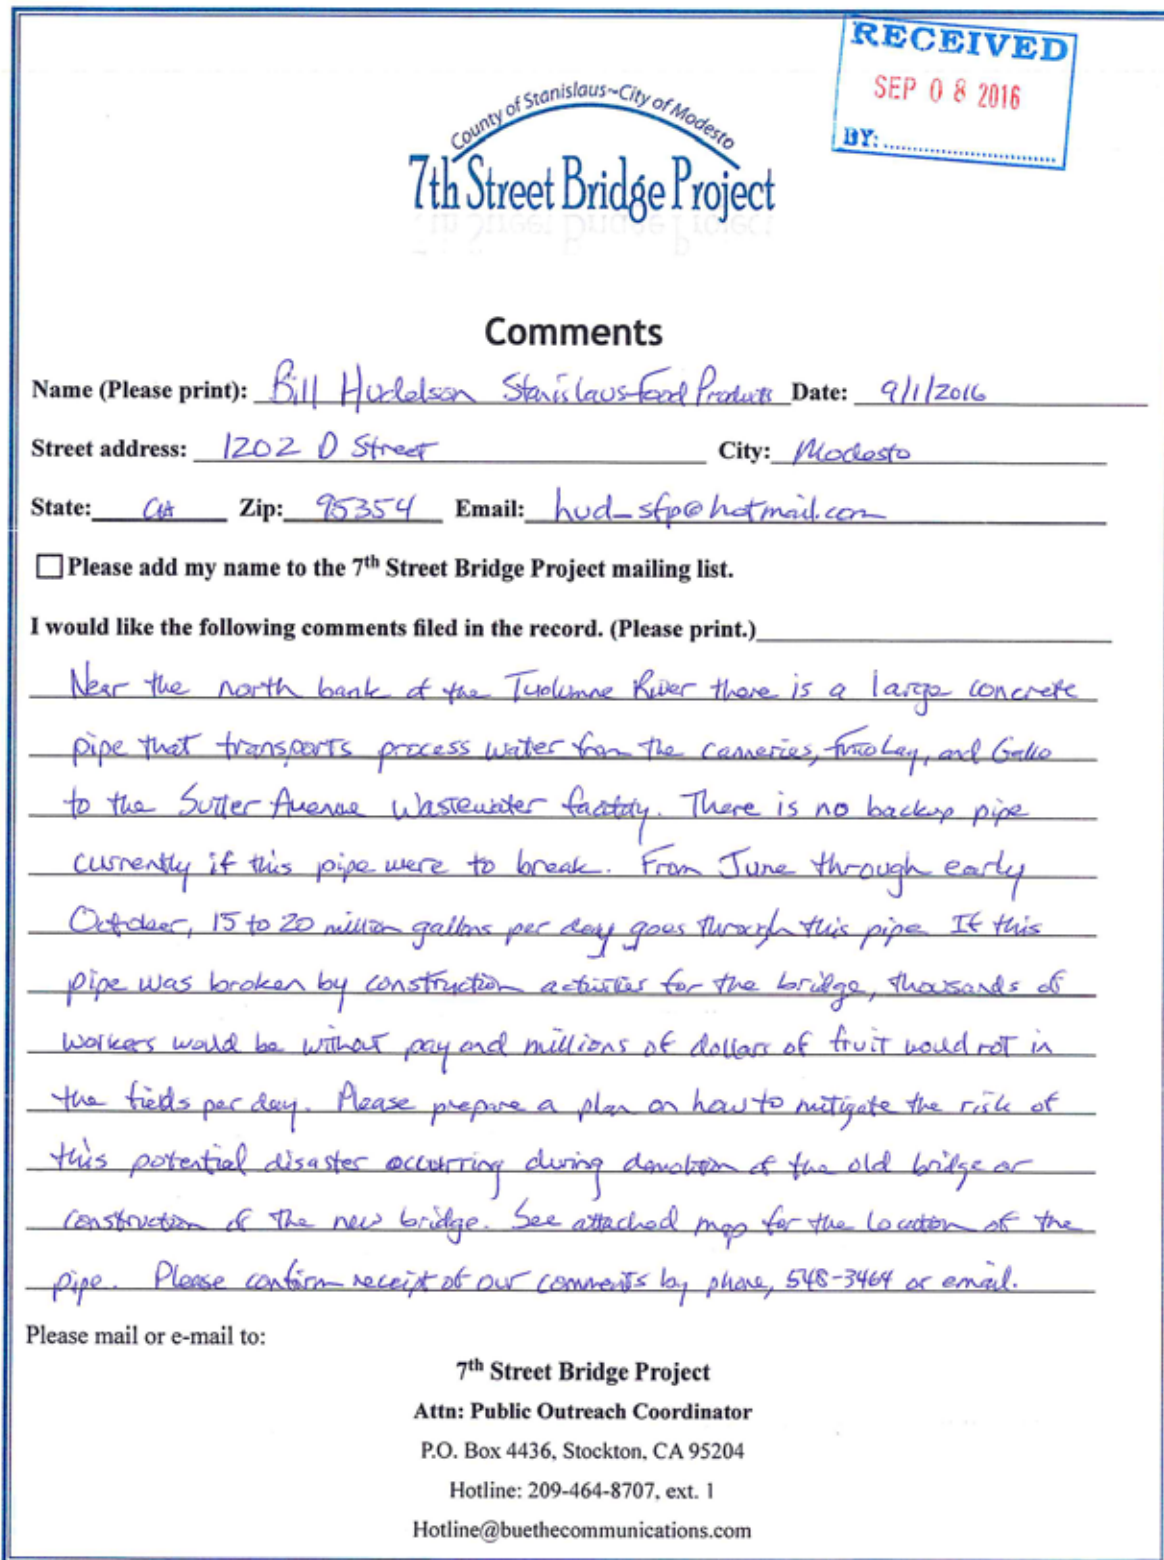 RECEIVED
SEP 08 2016
BY:
County of Stanislaus~City of Modesto
7th Street Bridge Project
Comments
Name (Please print): Bill Hudelson Stanislaus Food Products Date: 9/1/2016
Street address: 1202 D Street City: Modesto
State: CA Zip: 95354 Email: hud_sfp@hotmail.com
Please add my name to the 7th Street Bridge Project mailing list.
I would like the following comments filed in the record. (Please print.)
Near the north bank of the Tuolumne River there is a large concrete
pipe that transports process water from the canneries, Frito Lay, and Gallo
to the Sutter Avenue Wastewater facility. There is no backup pipe
currently if this pipe were to break. From June through early
October, 15 to 20 million gallons per day goes through this pipe. If this
pipe was broken by construction activities for the bridge, thousands of
workers would be without pay and millions of dollars of fruit would rot in
the fields per day. Please prepare a plan on how to mitigate the risk of
this potential disaster occurring during demolition of the old bridge or
construction of the new bridge. See attached map for the location of the
pipe. Please confirm receipt of our comments by phone, 548-3464 or email.
Please mail or e-mail to:
7th Street Bridge Project
Attn: Public Outreach Coordinator
P.O. Box 4436, Stockton, CA 95204
Hotline: 209-464-8707, ext. 1
Hotline@buethecommunications.com